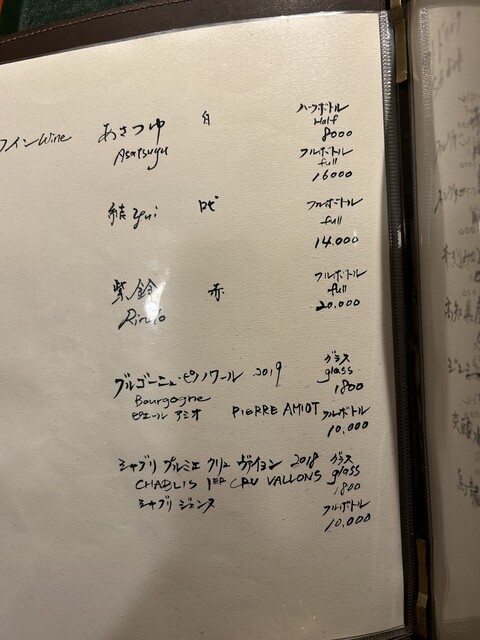 ワイン Wine あさつゆ 白 ハーフボトル
Asatsuyu Half
8000
フルボトル
full
16000
結 yui ロゼ フルボトル
full
14.000
紫鈴 赤 フルボトル
full
20.000
ブルゴーニュ・ピノワール 2019 グラス
glass
Bourgogne 1800
ピエール アミオ PIERRE AMIOT フルボトル
10.000
シャブリ プルミエ クリュ ヴァイヨン 2018 グラス
CHABLIS 1ER CRU VALLONS glass
1800
シャブリ ジェンヌ フルボトル
10.000